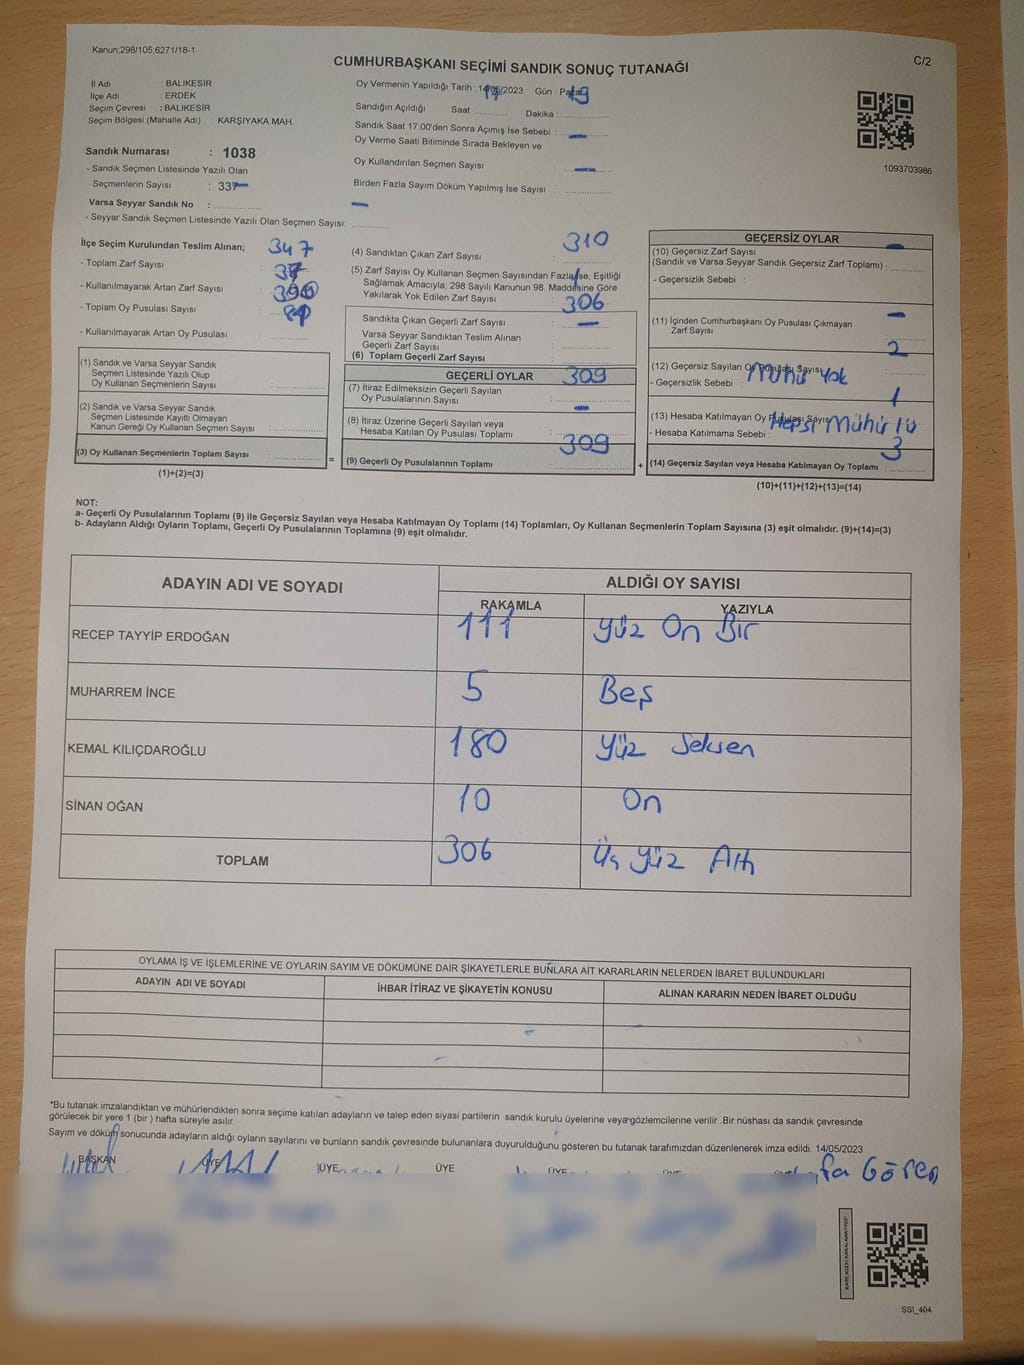 Kanun;298/105;6271/18-1
C/2
CUMHURBAŞKANI SEÇİMİ SANDIK SONUÇ TUTANAĞI
İl Adı : BALIKESİR
İlçe Adı : ERDEK
Seçim Çevresi : BALIKESİR
Seçim Bölgesi (Mahalle Adı) : KARŞIYAKA MAH.
Sandık Numarası : 1038
- Sandık Seçmen Listesinde Yazılı Olan
Seçmenlerin Sayısı : 337
Varsa Seyyar Sandık No :
- Seyyar Sandık Seçmen Listesinde Yazılı Olan Seçmen Sayısı:
Oy Vermenin Yapıldığı Tarih : 14/05/2023 Gün : Pazar
Sandığın Açıldığı Saat Dakika :
Sandık Saat 17:00'den Sonra Açımış İse Sebebi :
Oy Verme Saati Bitiminde Sırada Bekleyen ve
Oy Kullandırılan Seçmen Sayısı :
Birden Fazla Sayım Döküm Yapılmış İse Sayısı :
1093703986
İlçe Seçim Kurulundan Teslim Alınan; 347
- Toplam Zarf Sayısı :
- Kullanılmayarak Artan Zarf Sayısı :
- Toplam Oy Pusulası Sayısı :
- Kullanılmayarak Artan Oy Pusulası :
(1) Sandık ve Varsa Seyyar Sandık
Seçmen Listesinde Yazılı Olup
Oy Kullanan Seçmenlerin Sayısı :
(2) Sandık ve Varsa Seyyar Sandık
Seçmen Listesinde Kayıtlı Olmayan
Kanun Gereği Oy Kullanan Seçmen Sayısı :
(3) Oy Kullanan Seçmenlerin Toplam Sayısı :
(1)+(2)=(3)
310
(4) Sandıktan Çıkan Zarf Sayısı :
(5) Zarf Sayısı Oy Kullanan Seçmen Sayısından Fazla İse, Eşitliği
Sağlamak Amacıyla; 298 Sayılı Kanunun 98. Maddesine Göre
Yakılarak Yok Edilen Zarf Sayısı : 306
Sandıkta Çıkan Geçerli Zarf Sayısı :
Varsa Seyyar Sandıktan Teslim Alınan
Geçerli Zarf Sayısı :
(6) Toplam Geçerli Zarf Sayısı :
GEÇERLİ OYLAR 309
(7) İtiraz Edilmeksizin Geçerli Sayılan
Oy Pusulalarının Sayısı :
(8) İtiraz Üzerine Geçerli Sayılan veya
Hesaba Katılan Oy Pusulası Toplamı :
309
= (9) Geçerli Oy Pusulalarının Toplamı : +
GEÇERSİZ OYLAR
(10) Geçersiz Zarf Sayısı
(Sandık ve Varsa Seyyar Sandık Geçersiz Zarf Toplamı) :
- Geçersizlik Sebebi :
(11) İçinden Cumhurbaşkanı Oy Pusulası Çıkmayan
Zarf Sayısı :
2
(12) Geçersiz Sayılan Oy Pusulası Sayısı :
- Geçersizlik Sebebi : Mühür Yok
1
(13) Hesaba Katılmayan Oy Pusulası Sayısı
- Hesaba Katılmama Sebebi : Hepsi Mühürlü
3
(14) Geçersiz Sayılan veya Hesaba Katılmayan Oy Toplamı :
(10)+(11)+(12)+(13)=(14)
NOT:
a- Geçerli Oy Pusulalarının Toplamı (9) ile Geçersiz Sayılan veya Hesaba Katılmayan Oy Toplamı (14) Toplamları, Oy Kullanan Seçmenlerin Toplam Sayısına (3) eşit olmalıdır. (9)+(14)=(3)
b- Adayların Aldığı Oyların Toplamı, Geçerli Oy Pusulalarının Toplamına (9) eşit olmalıdır.
ADAYIN ADI VE SOYADI ALDIĞI OY SAYISI
RAKAMLA YAZIYLA
RECEP TAYYİP ERDOĞAN 111 Yüz On Bir
MUHARREM İNCE 5 Beş
KEMAL KILIÇDAROĞLU 180 Yüz Seksen
SİNAN OĞAN 10 On
TOPLAM 306 Üç Yüz Altı
OYLAMA İŞ VE İŞLEMLERİNE VE OYLARIN SAYIM VE DÖKÜMÜNE DAİR ŞİKAYETLERLE BUNLARA AİT KARARLARIN NELERDEN İBARET BULUNDUKLARI
ADAYIN ADI VE SOYADI İHBAR İTİRAZ VE ŞİKAYETİN KONUSU ALINAN KARARIN NEDEN İBARET OLDUĞU
*Bu tutanak imzalandıktan ve mühürlendikten sonra seçime katılan adayların ve talep eden siyasi partilerin sandık kurulu üyelerine veya gözlemcilerine verilir .Bir nüshası da sandık çevresinde
görülecek bir yere 1 (bir ) hafta süreyle asılır.
Sayım ve döküm sonucunda adayların aldığı oyların sayılarını ve bunların sandık çevresinde bulunanlara duyurulduğunu gösteren bu tutanak tarafımızdan düzenlenerek imza edildi. 14/05/2023
BAŞKAN ÜYE ÜYE ÜYE ÜYE ÜYE
fa Gören
KARE KODU KARALAMAYINIZ!
SSI_404